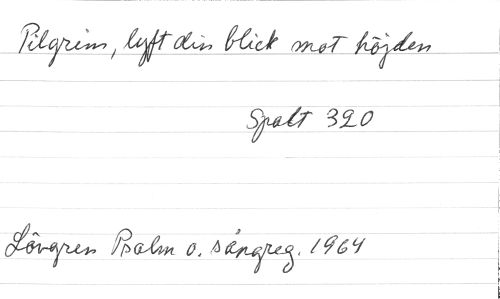 Pilgrim, lyft din blick mot höjden
Spalt 320
Lövgren Psalm o. sångreg. 1964